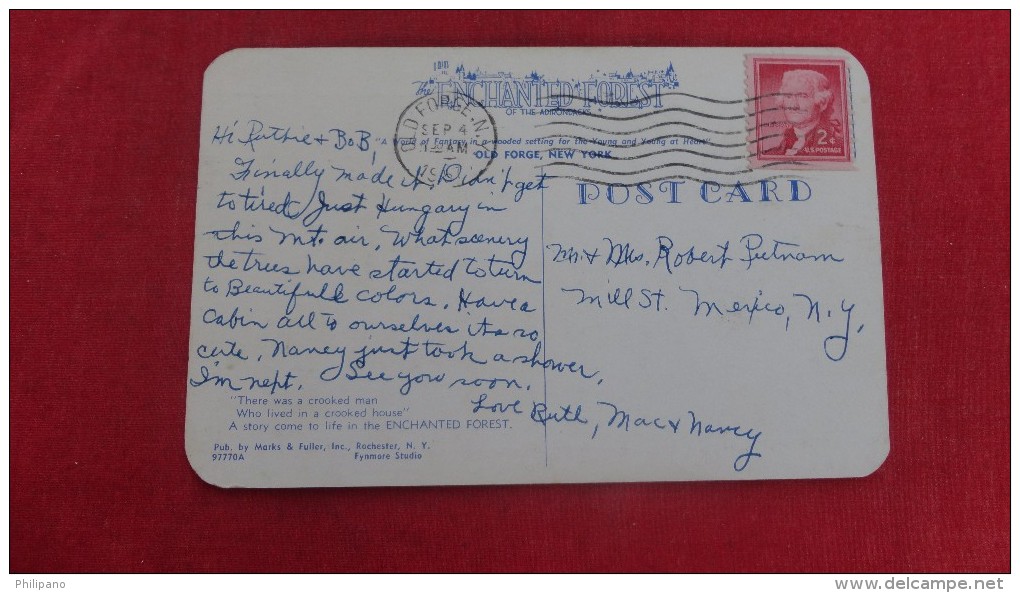 the ENCHANTED FOREST
OF THE ADIRONDACKS
"A World of Fantasy in a wooded setting for the Young and Young at Heart"
OLD FORGE, NEW YORK
OLD FORGE, N.
SEP 4
AM
2¢
U.S. POSTAGE
POST CARD
Hi Ruthie & BoB,
Finally made it, Didn't get
to tired Just Hungary in
this Mt. air, What scenery
the trees have started to turn
to Beautifull colors. Have a
cabin all to ourselves its so
cute, Nancy just took a shower,
I'm next. See you soon.
Love Ruth, Mac & Nancy
Mr. & Mrs. Robert Putnam
Mill St. Mexico, N.Y.
"There was a crooked man
Who lived in a crooked house"
A story come to life in the ENCHANTED FOREST.
Pub. by Marks & Fuller, Inc., Rochester, N. Y.
97770A Fynmore Studio
Philipano
www.delcampe.net